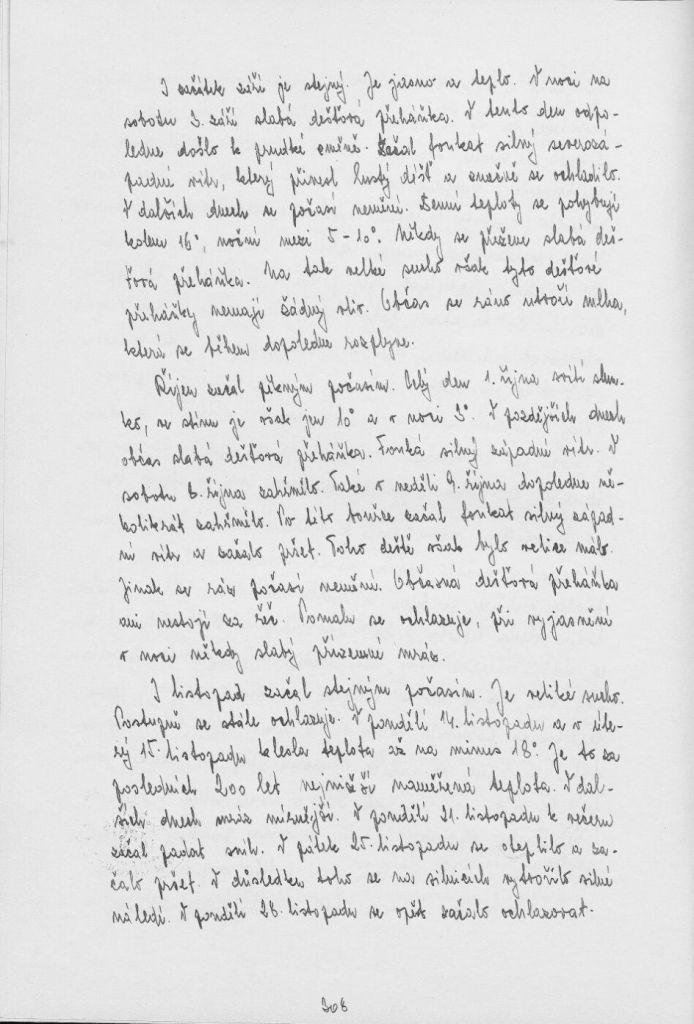 I začátek září je stejný. Je jasno a teplo. V noci na
sobotu 3. září slabá dešťová přeháňka. V tento den odpo-
ledne došlo k prudké změně. Začal foukat silný severozá-
padní vítr, který přinesl hustý déšť a značně se ochladilo.
V dalších dnech se počasí nemění. Denní teploty se pohybují
kolem 16°, noční mezi 5-10°. Někdy se přežene slabá deš-
ťová přeháňka. Na tak velké sucho však tyto dešťové
přeháňky nemají žádný vliv. Občas se ráno utvoří mlha,
která se během dopoledne rozplyne.
Říjen začal pěkným počasím. Celý den 1. října svítí slun-
ko, ve stínu je však jen 10° a v noci 3°. V pozdějších dnech
občas slabá dešťová přeháňka. Fouká silný západní vítr. V
sobotu 8. října zahřmělo. Také v neděli 9. října dopoledne ně-
kolikrát zahřmělo. Po této bouřce začal foukat silný západ-
ní vítr a začalo pršet. Toho deště však bylo velice málo.
Jinak se ráz počasí nemění. Občasná dešťová přeháňka
ani nestojí za řeč. Pomalu se ochlazuje, při vyjasnění
v noci někdy slabý přízemní mráz.
I listopad začal stejným počasím. Je veliké sucho.
Postupně se stále ochlazuje. V pondělí 14. listopadu a v úte-
rý 15. listopadu klesla teplota až na minus 18°. Je to za
posledních 200 let nejnižší naměřená teplota. V dal-
ších dnech mráz mírnější. V pondělí 21. listopadu k večeru
začal padat sníh. V pátek 25. listopadu se oteplilo a za-
čalo pršet. V důsledku toho se na silnicích vytvořilo silné
náledí. V pondělí 28. listopadu se opět začalo ochlazovat.
308